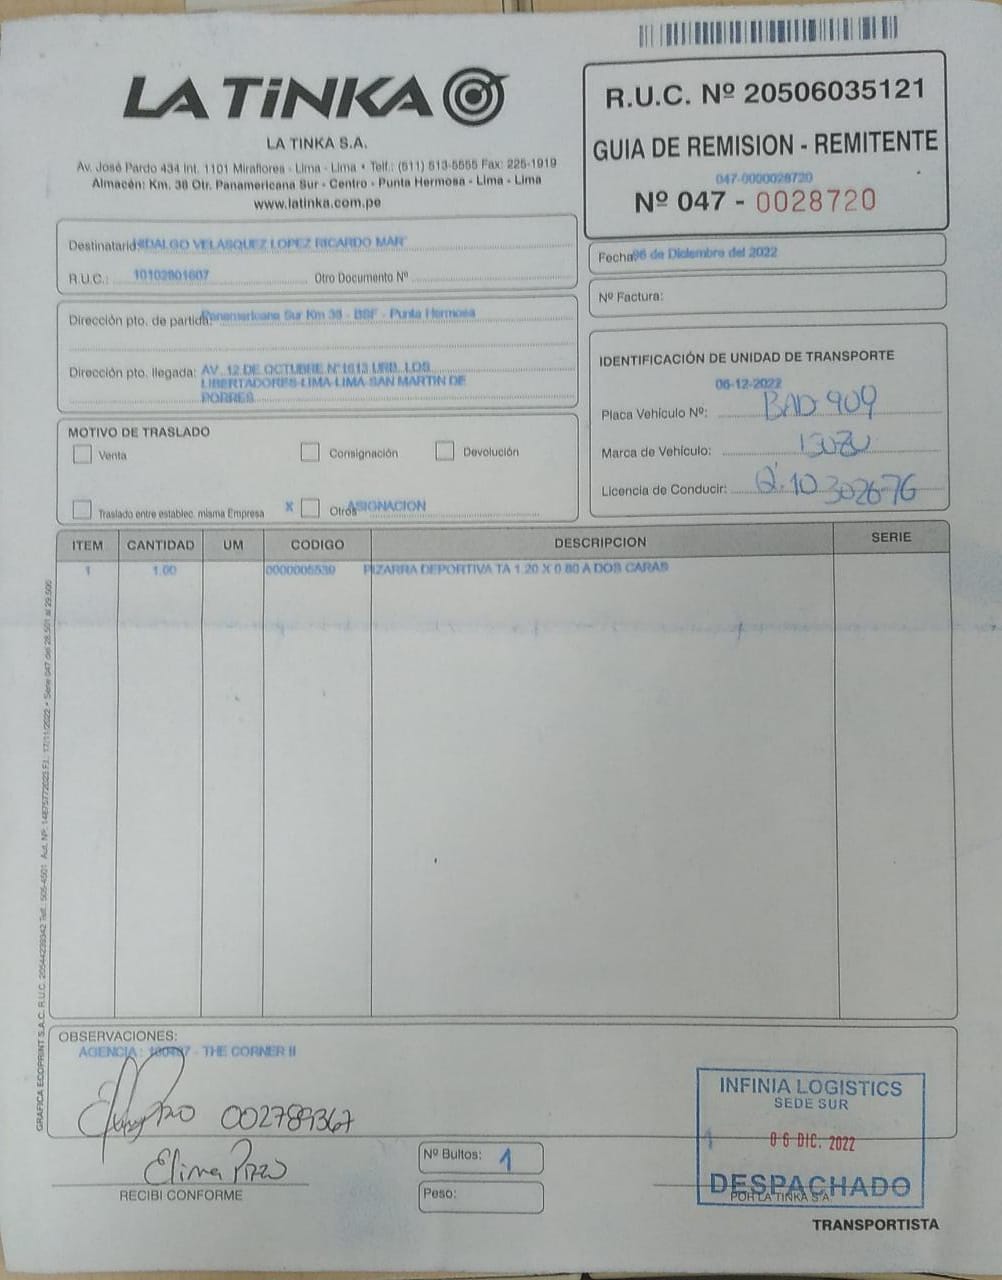 LA TiNKA
LA TINKA S.A.
Av. José Pardo 434 Int. 1101 Miraflores - Lima - Lima • Telf.: (511) 513-5555 Fax: 225-1919
Almacén: Km. 38 Otr. Panamericana Sur - Centro - Punta Hermosa - Lima - Lima
www.latinka.com.pe
R.U.C. Nº 20506035121
GUIA DE REMISION - REMITENTE
047-0000028720
Nº 047 - 0028720
Destinatario HIDALGO VELASQUEZ LOPEZ RICARDO MAR
R.U.C.: 10102801607 Otro Documento Nº
Fecha: 06 de Diciembre del 2022
Nº Factura:
Dirección pto. de partida: Panamericana Sur Km 38 - BSF - Punta Hermosa
Dirección pto. llegada: AV. 12 DE OCTUBRE N°1613 URB. LOS
LIBERTADORES-LIMA-LIMA-SAN MARTIN DE
PORRES
IDENTIFICACIÓN DE UNIDAD DE TRANSPORTE
06-12-2022
Placa Vehículo Nº: BAD 909
Marca de Vehículo: ISUZU
Licencia de Conducir: Q.10302676
MOTIVO DE TRASLADO
Venta Consignación Devolución
Traslado entre establec. misma Empresa X Otros ASIGNACION
ITEM CANTIDAD UM CODIGO DESCRIPCION SERIE
1 1.00 0000006539 PIZARRA DEPORTIVA TA 1.20 X 0.80 A DOS CARAS
GRAFICA ECOPRINT S.A.C. R.U.C. 20544239342 Telf.: 505-4501
OBSERVACIONES:
AGENCIA: - THE CORNER II
002789367
Elima Pizzo
RECIBI CONFORME
Nº Bultos: 1
Peso:
INFINIA LOGISTICS
SEDE SUR
06 DIC. 2022
DESPACHADO
POR LA TINKA S.A.
TRANSPORTISTA